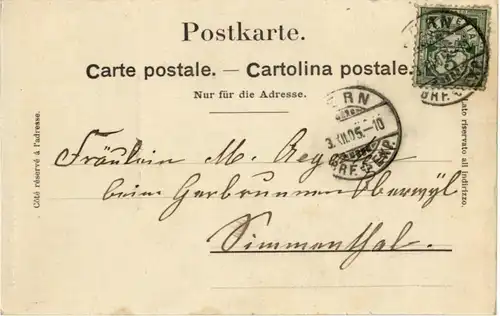 Postkarte.
Carte postale. — Cartolina postale.
Nur für die Adresse.
Côté réservé à l'adresse.
Lato riservato all indirizzo.
BERN
3.XII.05.-10
BRF.EXP.
Fräulein M.
beim Gerbrunnen Oberwyl
Simmenthal.